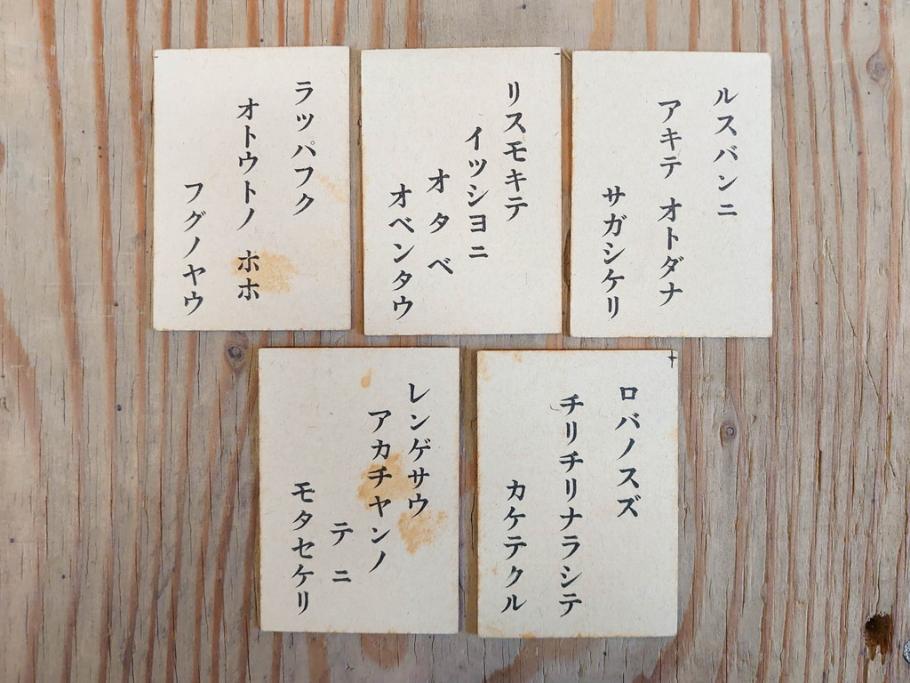 ルスバンニ
アキテ オトダナ
サガシケリ
リスモキテ
イツシヨニ
オタベ
オベンタウ
ラツパフク
オトウトノ ホホ
フグノヤウ
ロバノスズ
チリチリナラシテ
カケテクル
レンゲサウ
アカチヤンノ
テニ
モタセケリ